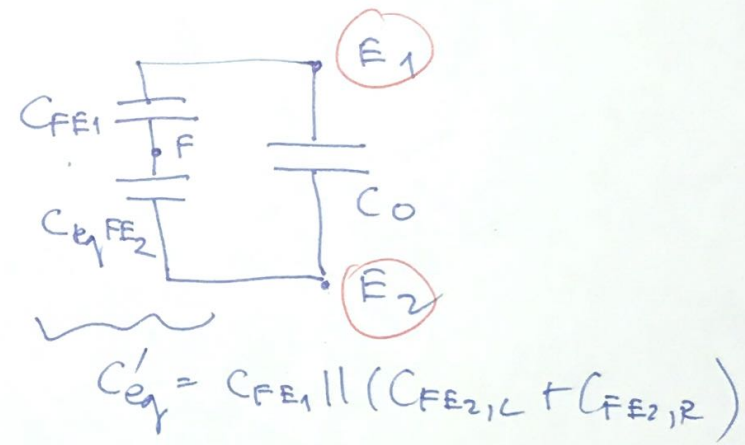 E1
C_FE1
F
C_eq FE2
C0
E2
C'_eq = C_FE1 || (C_FE2,L + C_FE2,R)